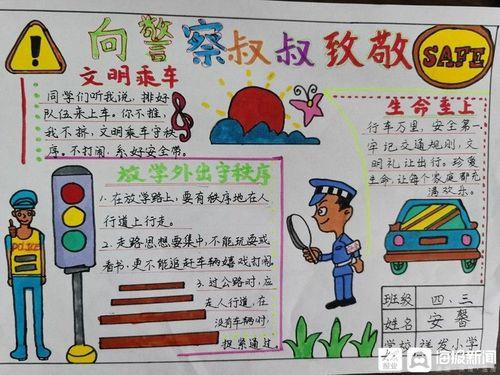 向警察叔叔致敬
SAFE
文明乘车
同学们听我说，排好
队伍来上车。你不推，
我不挤，文明乘车守秩
序。不打闹，系好安全带。
生命至上
行车万里，安全第一
牢记交通规则，文
明礼让出行。珍爱
生命，让每个家庭都充
满欢乐。
放学外出守秩序
1.在放学路上，要有秩序地在人
行道上行走。
2.走路思想要集中，不能玩耍或
看书，更不能追赶车辆嬉戏打闹
3.过公路时，应
走人行道，在
没有车辆时，
赶紧通过
POLICE
班级 四、三
姓名 安馨
学校 祥发小学
海报新闻